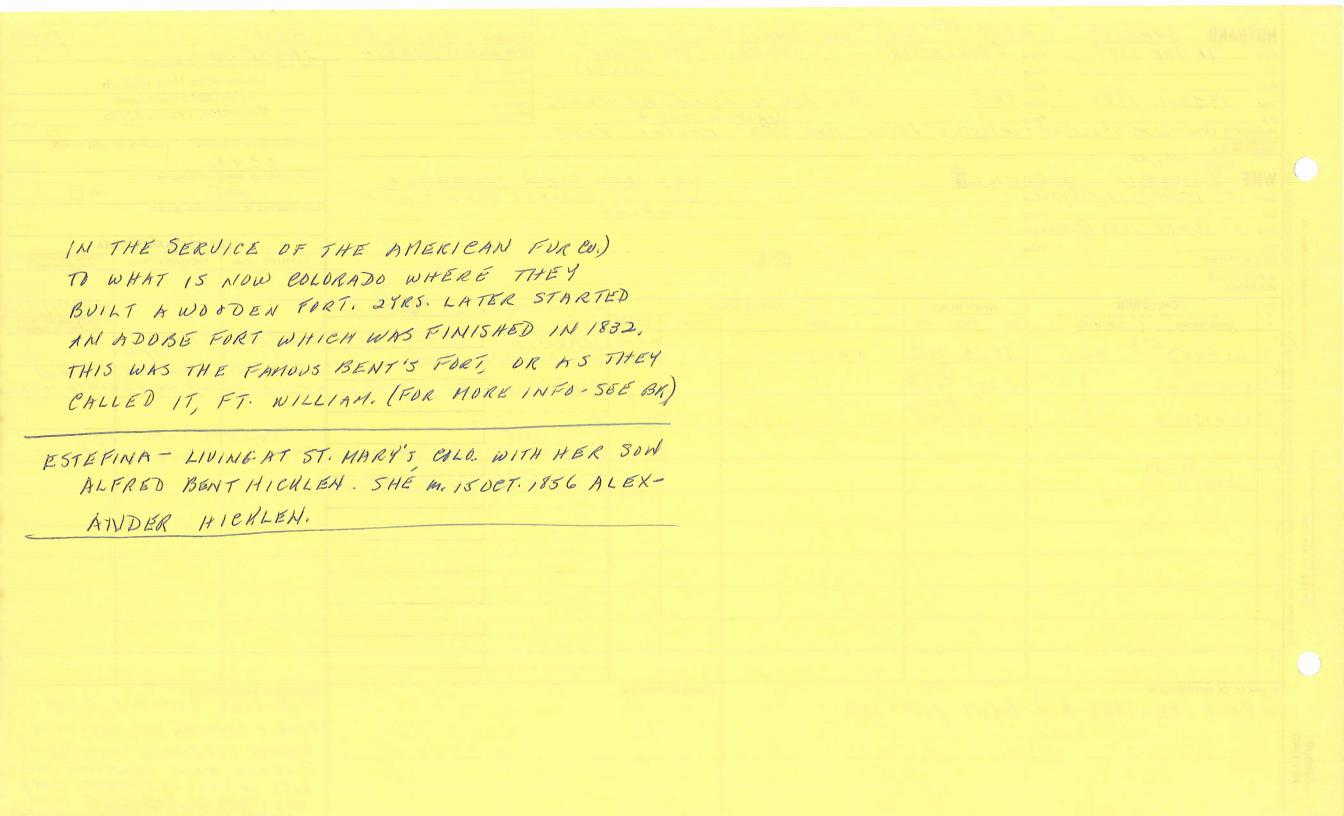 IN THE SERVICE OF THE AMERICAN FUR CO.)
TO WHAT IS NOW COLORADO WHERE THEY
BUILT A WOODEN FORT. 2YRS. LATER STARTED
AN ADOBE FORT WHICH WAS FINISHED IN 1832.
THIS WAS THE FAMOUS BENT'S FORT, OR AS THEY
CALLED IT, FT. WILLIAM. (FOR MORE INFO - SEE BK)
ESTEFINA - LIVING AT ST. MARY'S, COLO. WITH HER SON
ALFRED BENT HICKLEN. SHE m. 15 OCT. 1856 ALEX-
ANDER HICKLEN.